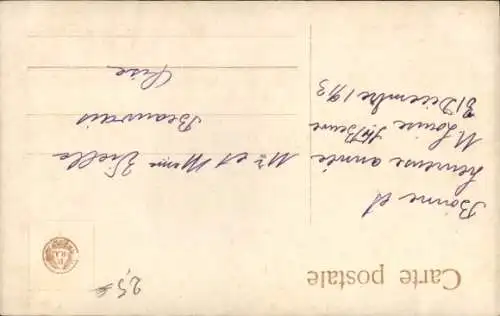 Carte postale
Bonne et
heureuse année
M Louise Ste Beuve
31 Décembre 1913
Mr et Mme Vielle
Beauvais
Oise
2,5 €